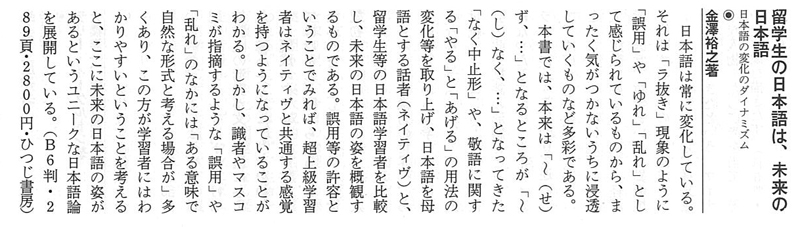 留学生の日本語は、未来の
日本語
日本語の変化のダイナミズム
◉
金澤裕之著
日本語は常に変化している。
それは「ラ抜き」現象のように
「誤用」や「ゆれ」「乱れ」とし
て感じられているものから、ま
ったく気がつかないうちに浸透
していくものなど多彩である。
本書では、本来は「〜（せ）
ず、…」となるところが「〜
（し）なく、…」となってきた
「なく中止形」や、敬語に関す
る「やる」と「あげる」の用法の
変化等を取り上げ、日本語を母
語とする話者（ネイティヴ）と、
留学生等の日本語学習者を比較
し、未来の日本語の姿を概観す
るものである。誤用等の許容と
いうことでみれば、超上級学習
者はネイティヴと共通する感覚
を持つようになっていることが
わかる。しかし、識者やマスコ
ミが指摘するような「誤用」や
「乱れ」のなかには「ある意味で
自然な形式と考える場合が」多
くあり、この方が学習者にはわ
かりやすいということを考える
と、ここに未来の日本語の姿が
あるというユニークな日本語論
を展開している。（Ｂ６判・２
８９頁・２８００円・ひつじ書房）